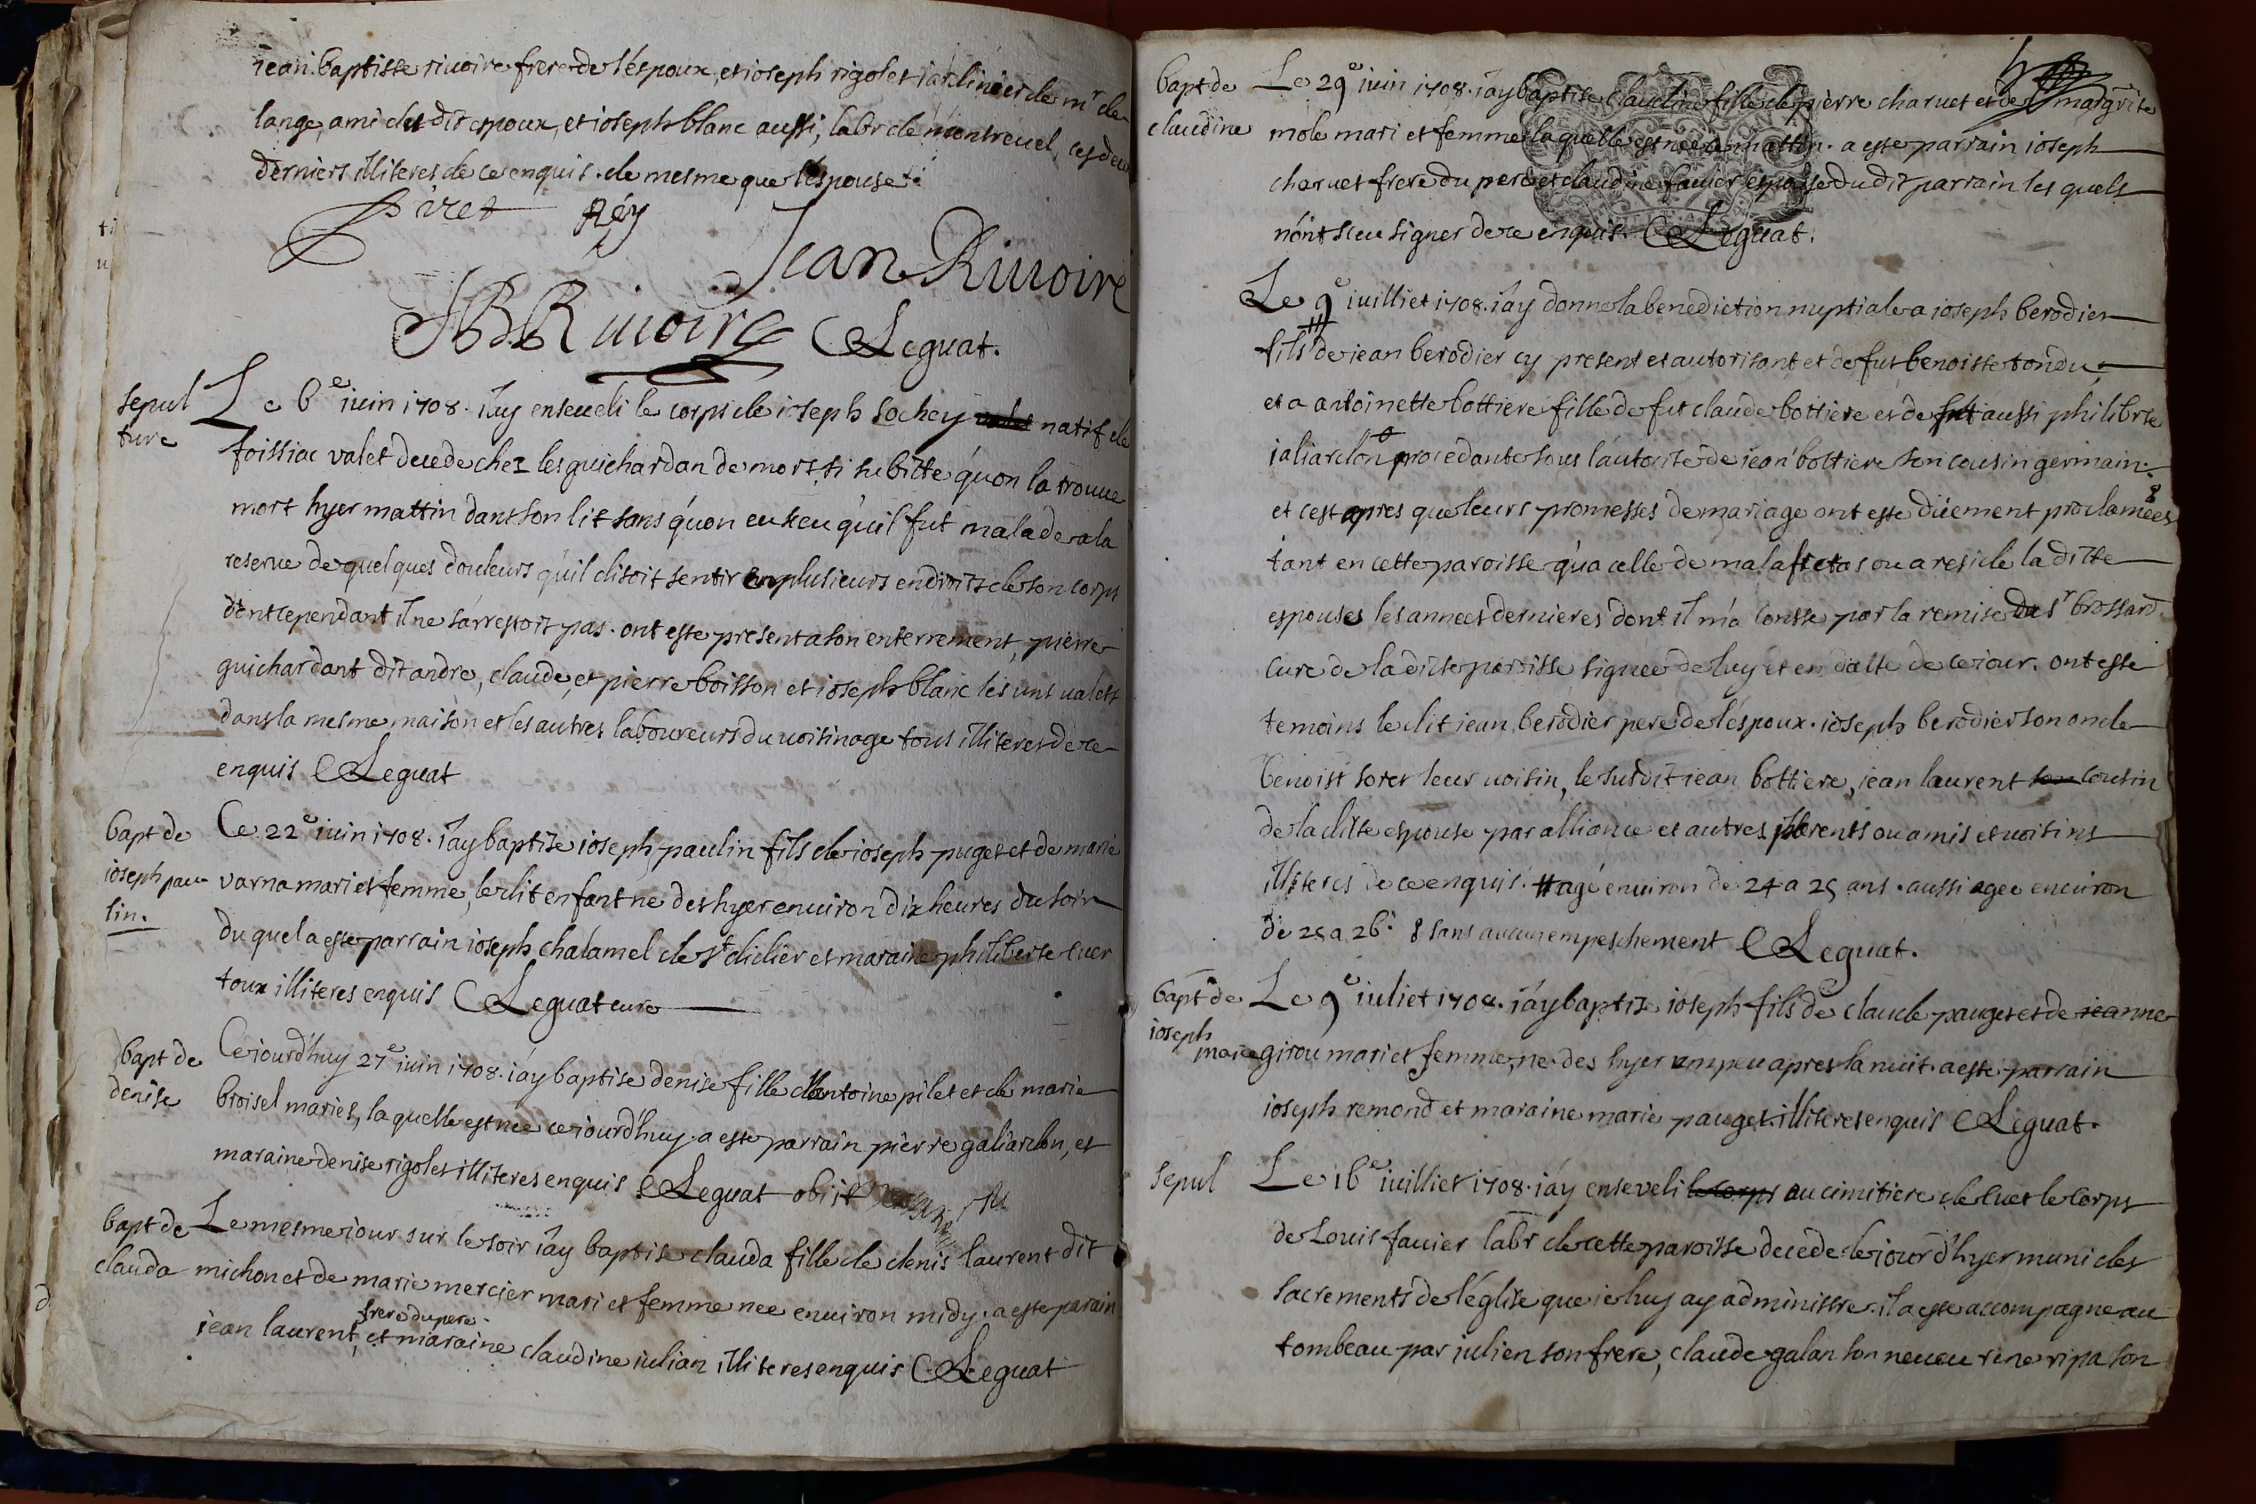 jean baptiste riuoire frere de l'espoux, et ioseph rigolet iardinier de mr de
lange, ami dudit espoux, et ioseph blanc aussi, labr de montreuel, ces deux
derniers illiteres de ce enquis. de mesme que l'espouse.
Piret Réy
Jean Riuoire
JB Riuoire CLeguat.
sepul
ture
Le 6e iuin 1708. i'ay enseueli le corps de ioseph sochey natif de
foissiac valet decede chez les guichardan de mort si subitte qu'on la trouue
mort hyer mattin dans son lit sans qu'on eu sceu qu'il fut malade a la
reserue de quelques douleurs qu'il disoit sentir en plusieurs endroits de son corps
dont cependant il ne s'arrestoit pas. ont este present a son enterrement, pierre
guichardant dit andre, claude, et pierre boisson et ioseph blanc les uns valets
dans la mesme maison et les autres laboureurs du uoisinage tous illiteres de ce
enquis CLeguat
bapt de
ioseph pau-
lin.
Ce 22e iuin 1708. i'ay baptise ioseph paulin fils de ioseph puget et de marie
varna mari et femme, le dit enfant ne des hyer enuiron dix heures du soir
du quel a este parrain ioseph chalamel de st didier et maraine philiberte cuer
toux illiteres enquis CLeguat cure
bapt de
denise
Ce iourd'huy 27e iuin 1708. i'ay baptise denise fille d'antoine pilet et de marie
broisel maries, la quelle est née ce iourd'huy. a este parrain pierre galiardon, et
maraine denise rigolet illiteres enquis CLeguat obiit
bapt de
clauda
Le mesme iour sur le soir i'ay baptise clauda fille de denis laurent dit
michon et de marie mercier mari et femme nee enuiron midy. a este parain
frere du pere.
jean laurent, et maraine claudine iulian illiteres enquis CLeguat
bapt de
claudine
Le 29e iuin 1708. i'ay baptise claudine fille de pierre charuet et de margrite
mole mari et femme la quelle est nee ce mattin. a este parrain ioseph
charuet frere du pere et claudine fauier espouse dudit parrain les quels
n'ont sceu signer de ce enquis. CLeguat.
Le 9e iuilliet 1708. i'ay donne la benediction nuptiale a ioseph berodier
fils de jean berodier cy present et autorisant et de fut benoiste tondu
et a antoinette bottiere fille de fut claude bottiere et de fut aussi philibrte
jaliardon procedante sous l'autorité de jean bottiere son cousin germain.
et c'est apres que leurs promesses de mariage ont este düement proclamées
tant en cette paroisse qu'a celle de malafretas ou a reside la ditte
espouse les annees dernieres dont il m'a consté par la remise du sr brossard
cure de la ditte paroisse signee de luy et en datte de ce jour. ont este
temoins le dit jean berodier pere de l'espoux. ioseph berodier son oncle
benoist soret leur uoisin, le susdit jean bottiere, jean laurent cousin
de la ditte espouse par alliance et autres parents ou amis et uoisins
illiteres de ce enquis. agé enuiron de 24 a 25 ans. aussi agee enuiron
de 25 a 26. 8 sans aucun empeschement CLeguat.
bapt de
ioseph
marie
Le 9e iuliet 1708. i'ay baptise ioseph fils de claude pauget et de jeanne
girou mari et femme, ne des hyer un peu apres la nuit. a este parrain
ioseph remond et maraine marie pauget illiteres enquis CLeguat.
sepul
Le 16e iuilliet 1708. i'ay enseveli le corps au cimitiere de cuet le corps
de Louis fauier labr de cette paroisse decede le jour d'hyer muni des
sacrements de l'église que ie luy ay administre. il a este accompagne au
tombeau par julien son frere, claude galan son neueu rene ripa son